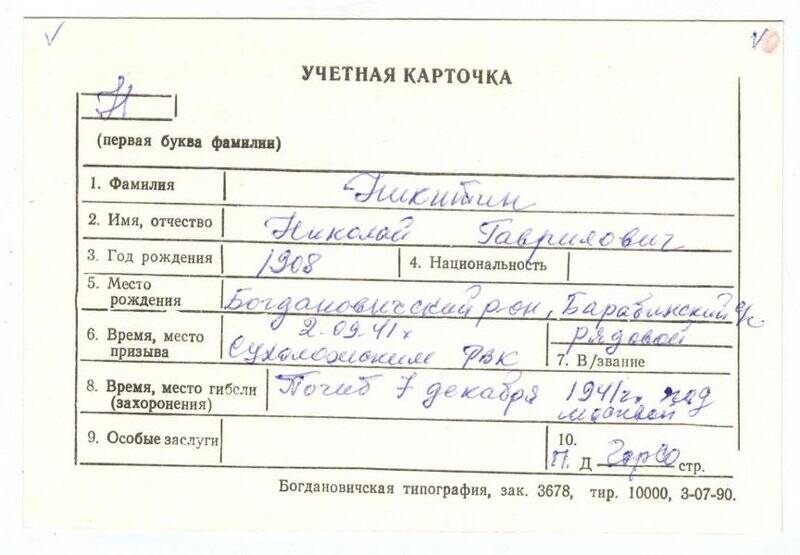 УЧЕТНАЯ КАРТОЧКА
Н
(первая буква фамилии)
1. Фамилия Никитин
2. Имя, отчество Николай Гаврилович
3. Год рождения 1908 4. Национальность
5. Место рождения Богдановичский р-он, Барабинский с/с
6. Время, место призыва 2.09.41г. Сухоложским РВК
рядовой
7. В/звание
8. Время, место гибели (захоронения) Погиб 7 декабря 1941г. под Москвой
9. Особые заслуги
10.
П. Д стр.
Богдановичская типография, зак. 3678, тир. 10000, 3-07-90.